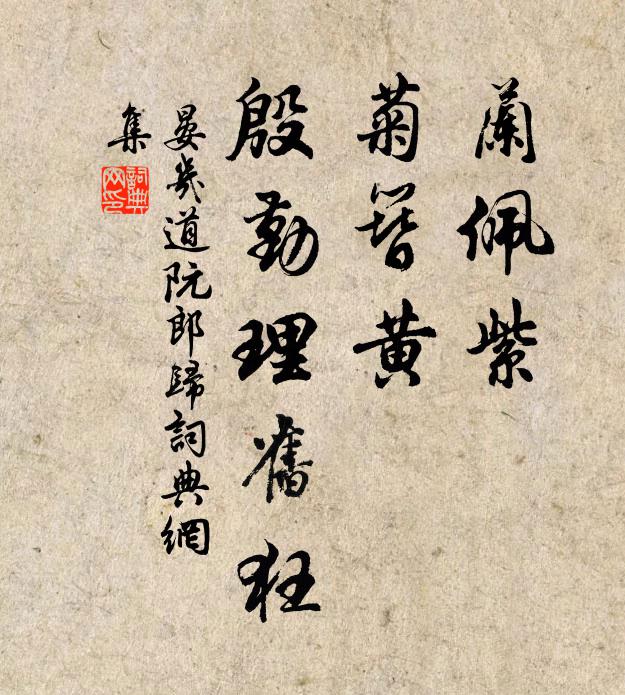 蘭佩紫
菊簪黃
殷勤理舊狂
晏幾道阮郎歸詞典網
集
詞典
网印